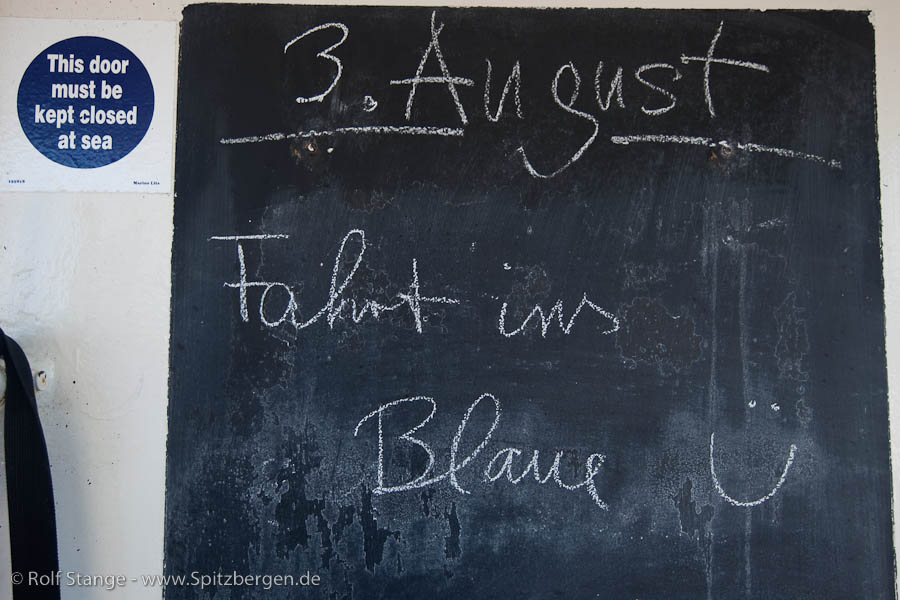 This door
must be
kept closed
at sea
3. August
Fahrt ins
Blaue
© Rolf Stange - www.Spitzbergen.de